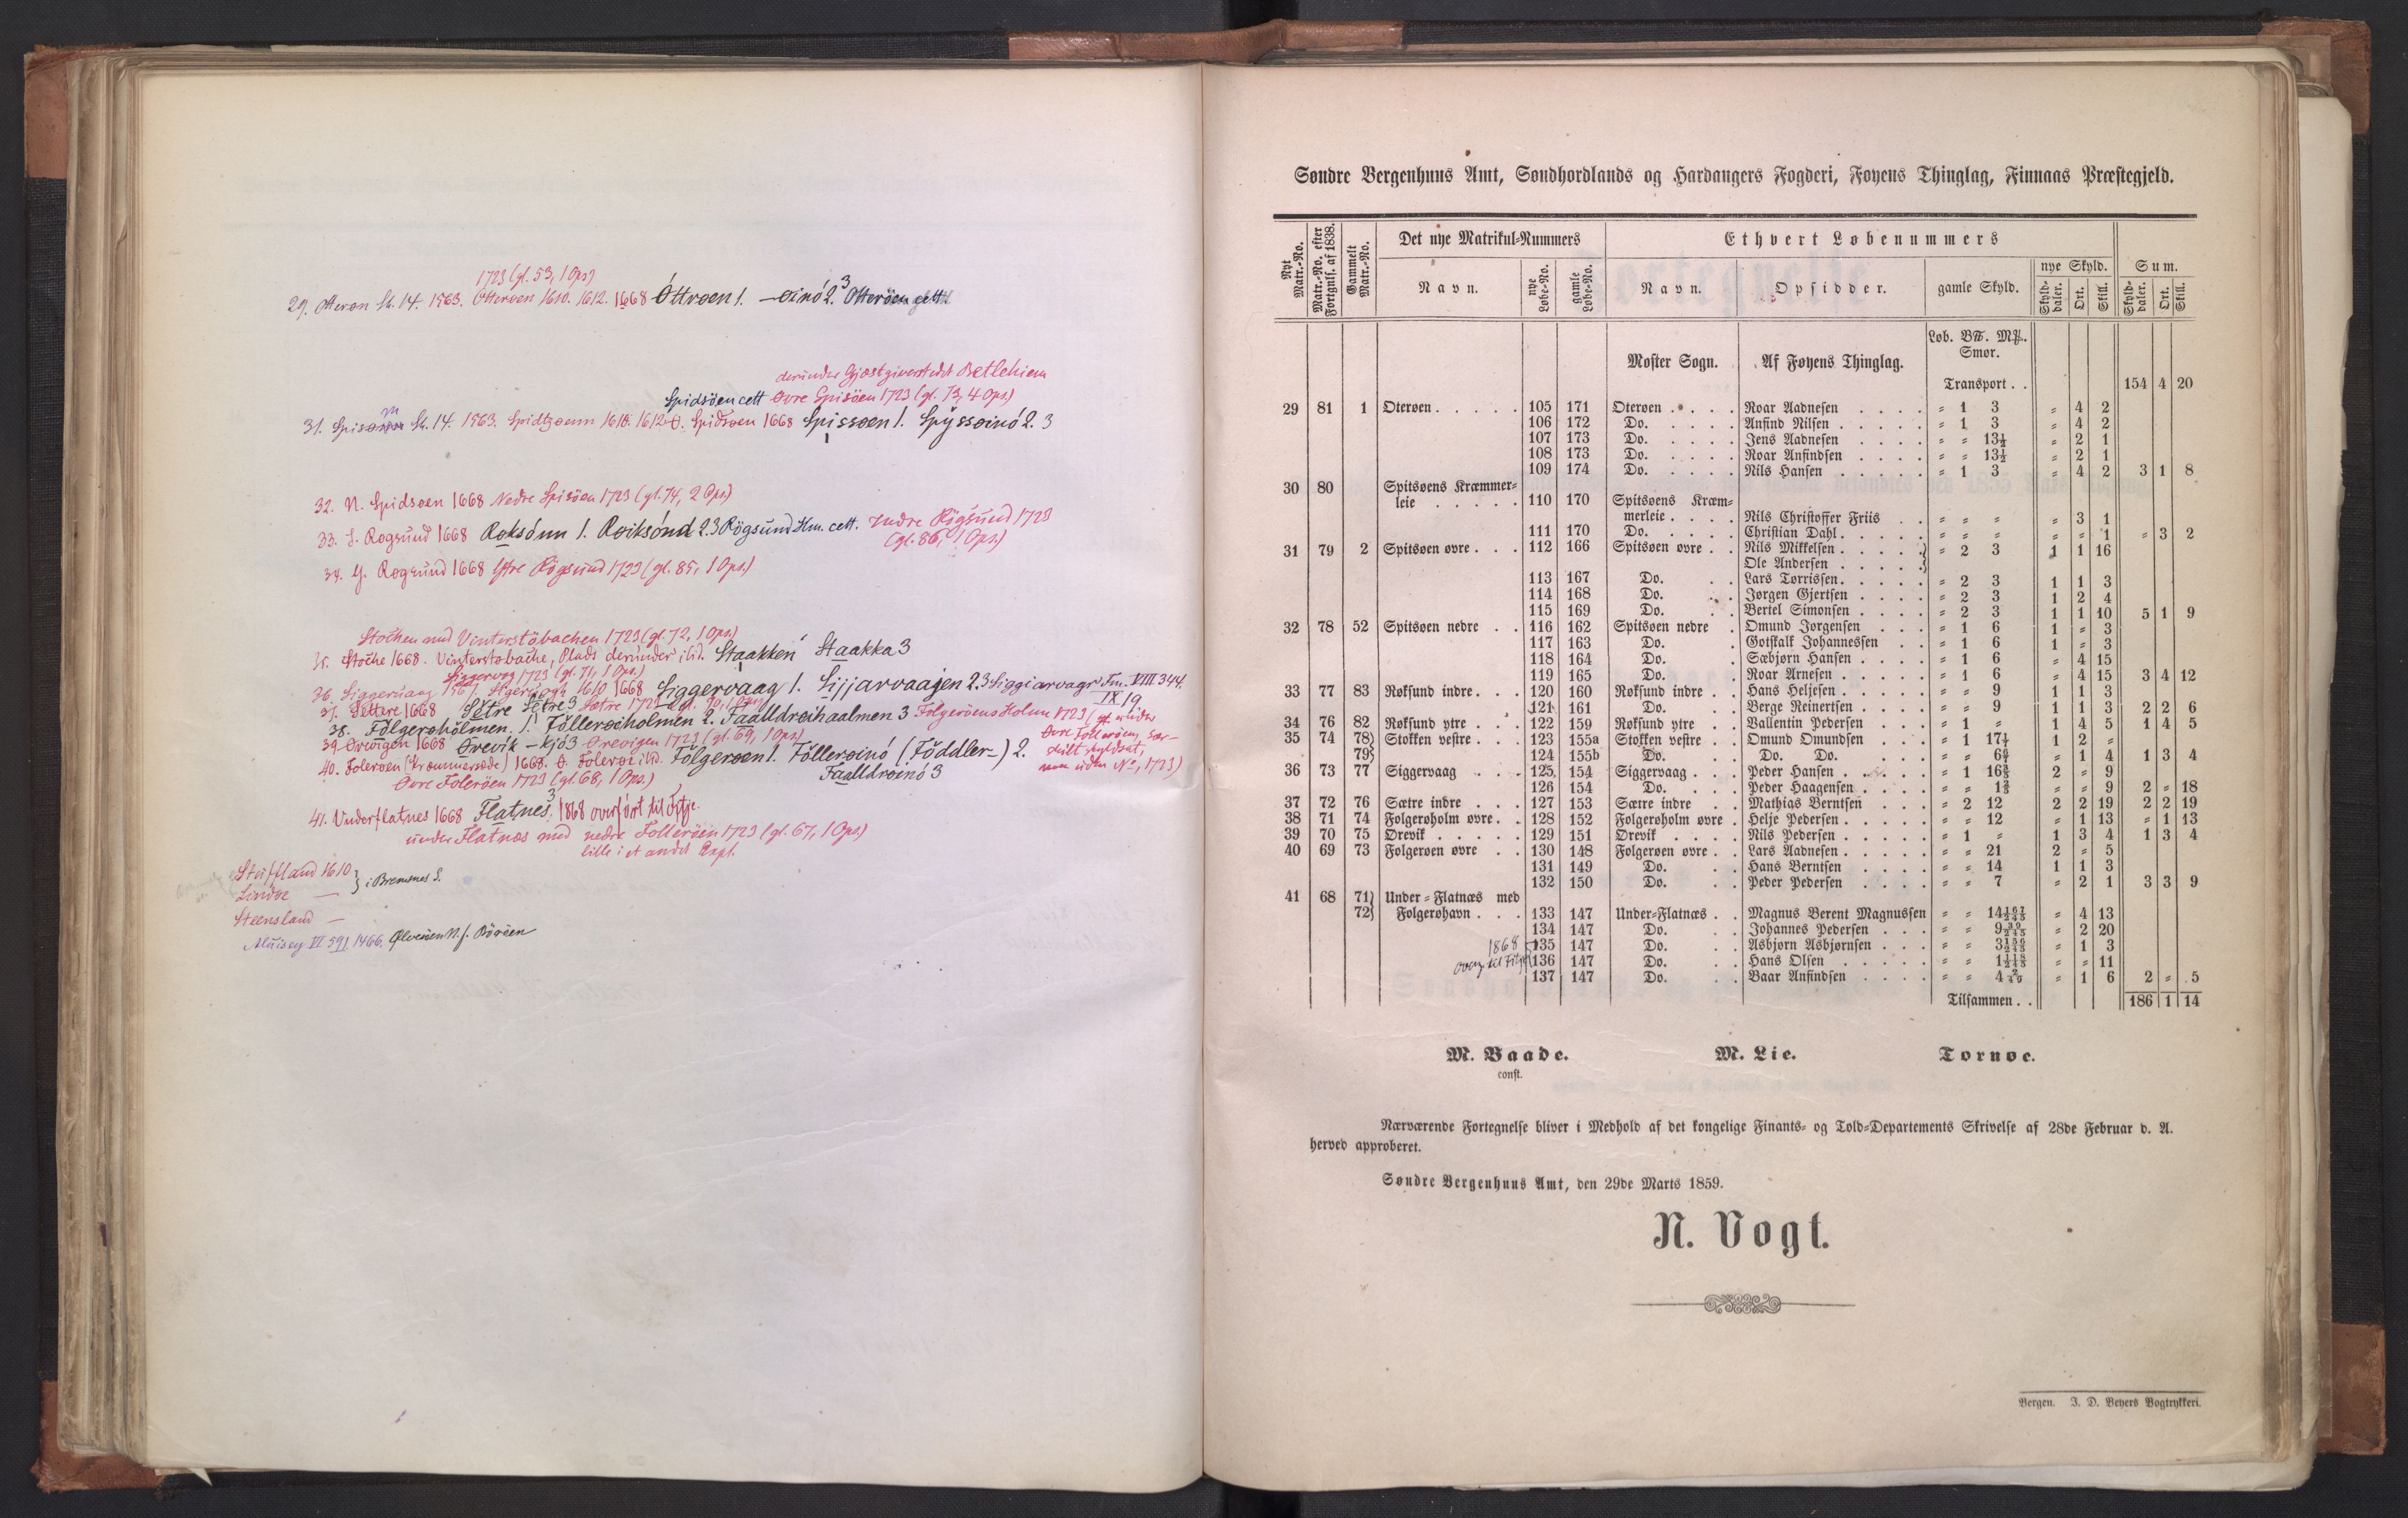 1723 (gl. 53, 1 Ops)
29. Oteron St. 14. 1563. Otterøen 1610. 1612. 1668 Óttroen 1. –oinó 2.3 Otterøen cett.
derunder Gjæstgiverstedet Betlehiem
Spidsöen cett Øvre Spisöen 1723 (gl. 73, 4 Ops)
31. St. 14. 1563. 1610. 1612. Ø. Spidsøen 1668 Spissoen 1. Spyssoinó 2. 3
32. N. Spidsøen 1668 Nedre Spisöen 1723 (gl. 74, 2 Ops)
33. I. Rogsund 1668 Roksónn 1. Roiksónd 2.3 Rögsund Hm. cett. Indre Rögsund 1723
(gl. 86, 1 Ops.)
34. Y. Rogsund 1668 Ytre Rögsund 1723 (gl. 85, 1 Ops.)
Stochen med Vinterstöbachen 1723 (gl. 72, 1 Ops.)
35. Stoche 1668. Vinterstobache, Plads derunder ibid. Staakken Staakka 3
Siggervog 1723 (gl. 71, 1 Ops.)
36. Siggeruaag 1567. 1610 1668 Siggervaag 1. Sijjarvaajen 2.3 Siggiarvagr Fm. VIII 344.
IX 19
37. Settere 1668 Sětre Sětre 3 Sætre 1723 (gl. 70, 1 Ops)
38. Fölgeroholmen. 1. Fölleroiholmen 2. Faalldroihaalmen 3 Folgeröens Holm 1723 (gl. under
Øvre Folleröen, sær-
skilt skyldsat,
men uden No, 1723)
39. Orevigen 1668 Órevik – kjó 3 Orevigen 1723 (gl. 69, 1 Ops.)
40. Foleroen (Kræmmersæde) 1668. Ø. Föleröi ibid. Fölgeroen 1. Fölleroinó (Föddler-) 2.
Faalldroinó 3
Øvre Foleröen 1723 (gl. 68, 1 Ops.)
41. Underflatnes 1668 Flatnes 3, 1868 overført til Fitje.
under Flatnæs med nedre Folleröen 1723 (gl. 67, 1 Ops)
lille i et andet Expl.
Steffland 1610 } i Bremnes S.
Lindöe —
Steensland —
Aluisøy VI 591. 1466. Ølveröen N. f. Börøen
Søndre Bergenhuus Amt, Søndhordlands og Hardangers Fogderi, Føyens Thinglag, Finnaas Præstegjeld.
Nyt Matr.-No. | Matr.-No. efter Forignlf. af 1838. | Gammelt Matr.-No. | Det nye Matrikul-Nummers | Ethvert Løbenummers
Navn. | nye Løbe-No. | gamle Løbe-No. | Navn. | Opsidder. | gamle Skyld. | nye Skyld. | Sum.
Skylddaler. | Ort. | Skill. | Skylddaler. | Ort. | Skill.
Løb. B℔. M℔.
Smør.
Moster Sogn. Af Føyens Thinglag.
Transport . . 154 4 20
29 81 1 Oterøen . . . . . 105 171 Oterøen . . . . Roar Aadnesen . . . . = 1 3 = 4 2
106 172 Do. . . . . Anfind Nilsen . . . . . = 1 3 = 4 2
107 173 Do. . . . . Jens Aadnesen . . . . = = 13½ = 2 1
108 173 Do. . . . . Roar Anfindsen . . . . = = 13½ = 2 1
109 174 Do. . . . . Nils Hansen . . . . . = 1 3 = 4 2 3 1 8
30 80 Spitsøens Kræmmer-
leie . . . . . 110 170 Spitsøens Kræm-
merleie . . . . Nils Christoffer Friis . . = = = = 3 1
111 170 Do. . . . . Christian Dahl . . . . . = = = = = 1 = 3 2
31 79 2 Spitsøen øvre . . . 112 166 Spitsøen øvre . . Nils Mikkelsen . . . . .} = 2 3 1 1 16
Ole Andersen . . . . .}
113 167 Do. . . Lars Tørrissen . . . . . = 2 3 1 1 3
114 168 Do. . . Jørgen Gjertsen . . . . = 2 3 1 2 4
115 169 Do. . . Bertel Simonsen . . . . = 2 3 1 1 10 5 1 9
32 78 52 Spitsøen nedre . . 116 162 Spitsøen nedre . Omund Jørgensen . . . = 1 6 1 = 3
117 163 Do. . Gotskalk Johannessen . . = 1 6 1 = 3
118 164 Do. . Sæbjørn Hansen . . . . = 1 6 = 4 15
119 165 Do. . Roar Arnesen . . . . . = 1 6 = 4 15 3 4 12
33 77 83 Røksund indre . . . 120 160 Røksund indre . . Hans Heljesen . . . . . = = 9 1 1 3
121 161 Do. . . Berge Reinertsen . . . . = = 9 1 1 3 2 2 6
34 76 82 Røksund ytre . . . 122 159 Røksund ytre . . Vallentin Pedersen . . . = 1 = 1 4 5 1 4 5
35 74 78) Stokken vestre . . . 123 155a Stokken vestre . . Omund Omundsen . . . = 1 17½ 1 2 =
79) 124 155b Do. . . Do. Do. . . . = = = 1 4 1 3 4
36 73 77 Siggervaag . . . 125 154 Siggervaag . . . Peder Hansen . . . . . = 1 2 = 9
126 154 Do. . . . Peder Haagensen . . . . = = = = 9 2 = 18
37 72 76 Sætre indre . . . 127 153 Sætre indre . . Mathias Berntsen . . . = 2 12 2 2 19 2 2 19
38 71 74 Folgerøholm øvre . . 128 152 Folgerøholm øvre . Helje Pedersen . . . . . = = 12 = 1 13 = 1 13
39 70 75 Orevik . . . . . 129 151 Orevik . . . . Nils Pedersen . . . . . = 1 = 1 3 4 1 3 4
40 69 73 Folgerøen øvre . . 130 148 Folgerøen øvre . . Lars Aadnesen . . . . . = = 21 2 = 5
131 149 Do. . . Hans Berntsen . . . . = = 14 1 1 3
132 150 Do. . . Peder Pedersen . . . . = = 7 = 2 1 3 3 9
41 68 71) Under-Flatnæs med
72) Folgerøhavn . . . 133 147 Under-Flatnæs . . Magnus Berent Magnussen = = 14 161/245 = 4 13
134 147 Do. . . Johannes Pedersen . . . = = 9 39/245 = 2 20
1868 135 147 Do. . . Asbjørn Asbjørnsen . . . = = 3 156/245 = 1 3
overg. til Fitje 136 147 Do. . . Hans Olsen . . . . . = = 1 118/245 = = 11
137 147 Do. . . Baar Anfindsen . . . . = = 4 2/49 = 1 6 2 = 5
Tilsammen . . 186 1 14
M. Vaade. M. Lie. Tornøe.
const.
Nærværende Fortegnelse bliver i Medhold af det kongelige Finants- og Told-Departements Skrivelse af 28de Februar d. A.
herved approberet.
Søndre Bergenhuus Amt, den 29de Marts 1859.
N. Vogt.
Bergen. J. D. Beyers Bogtrykkeri.